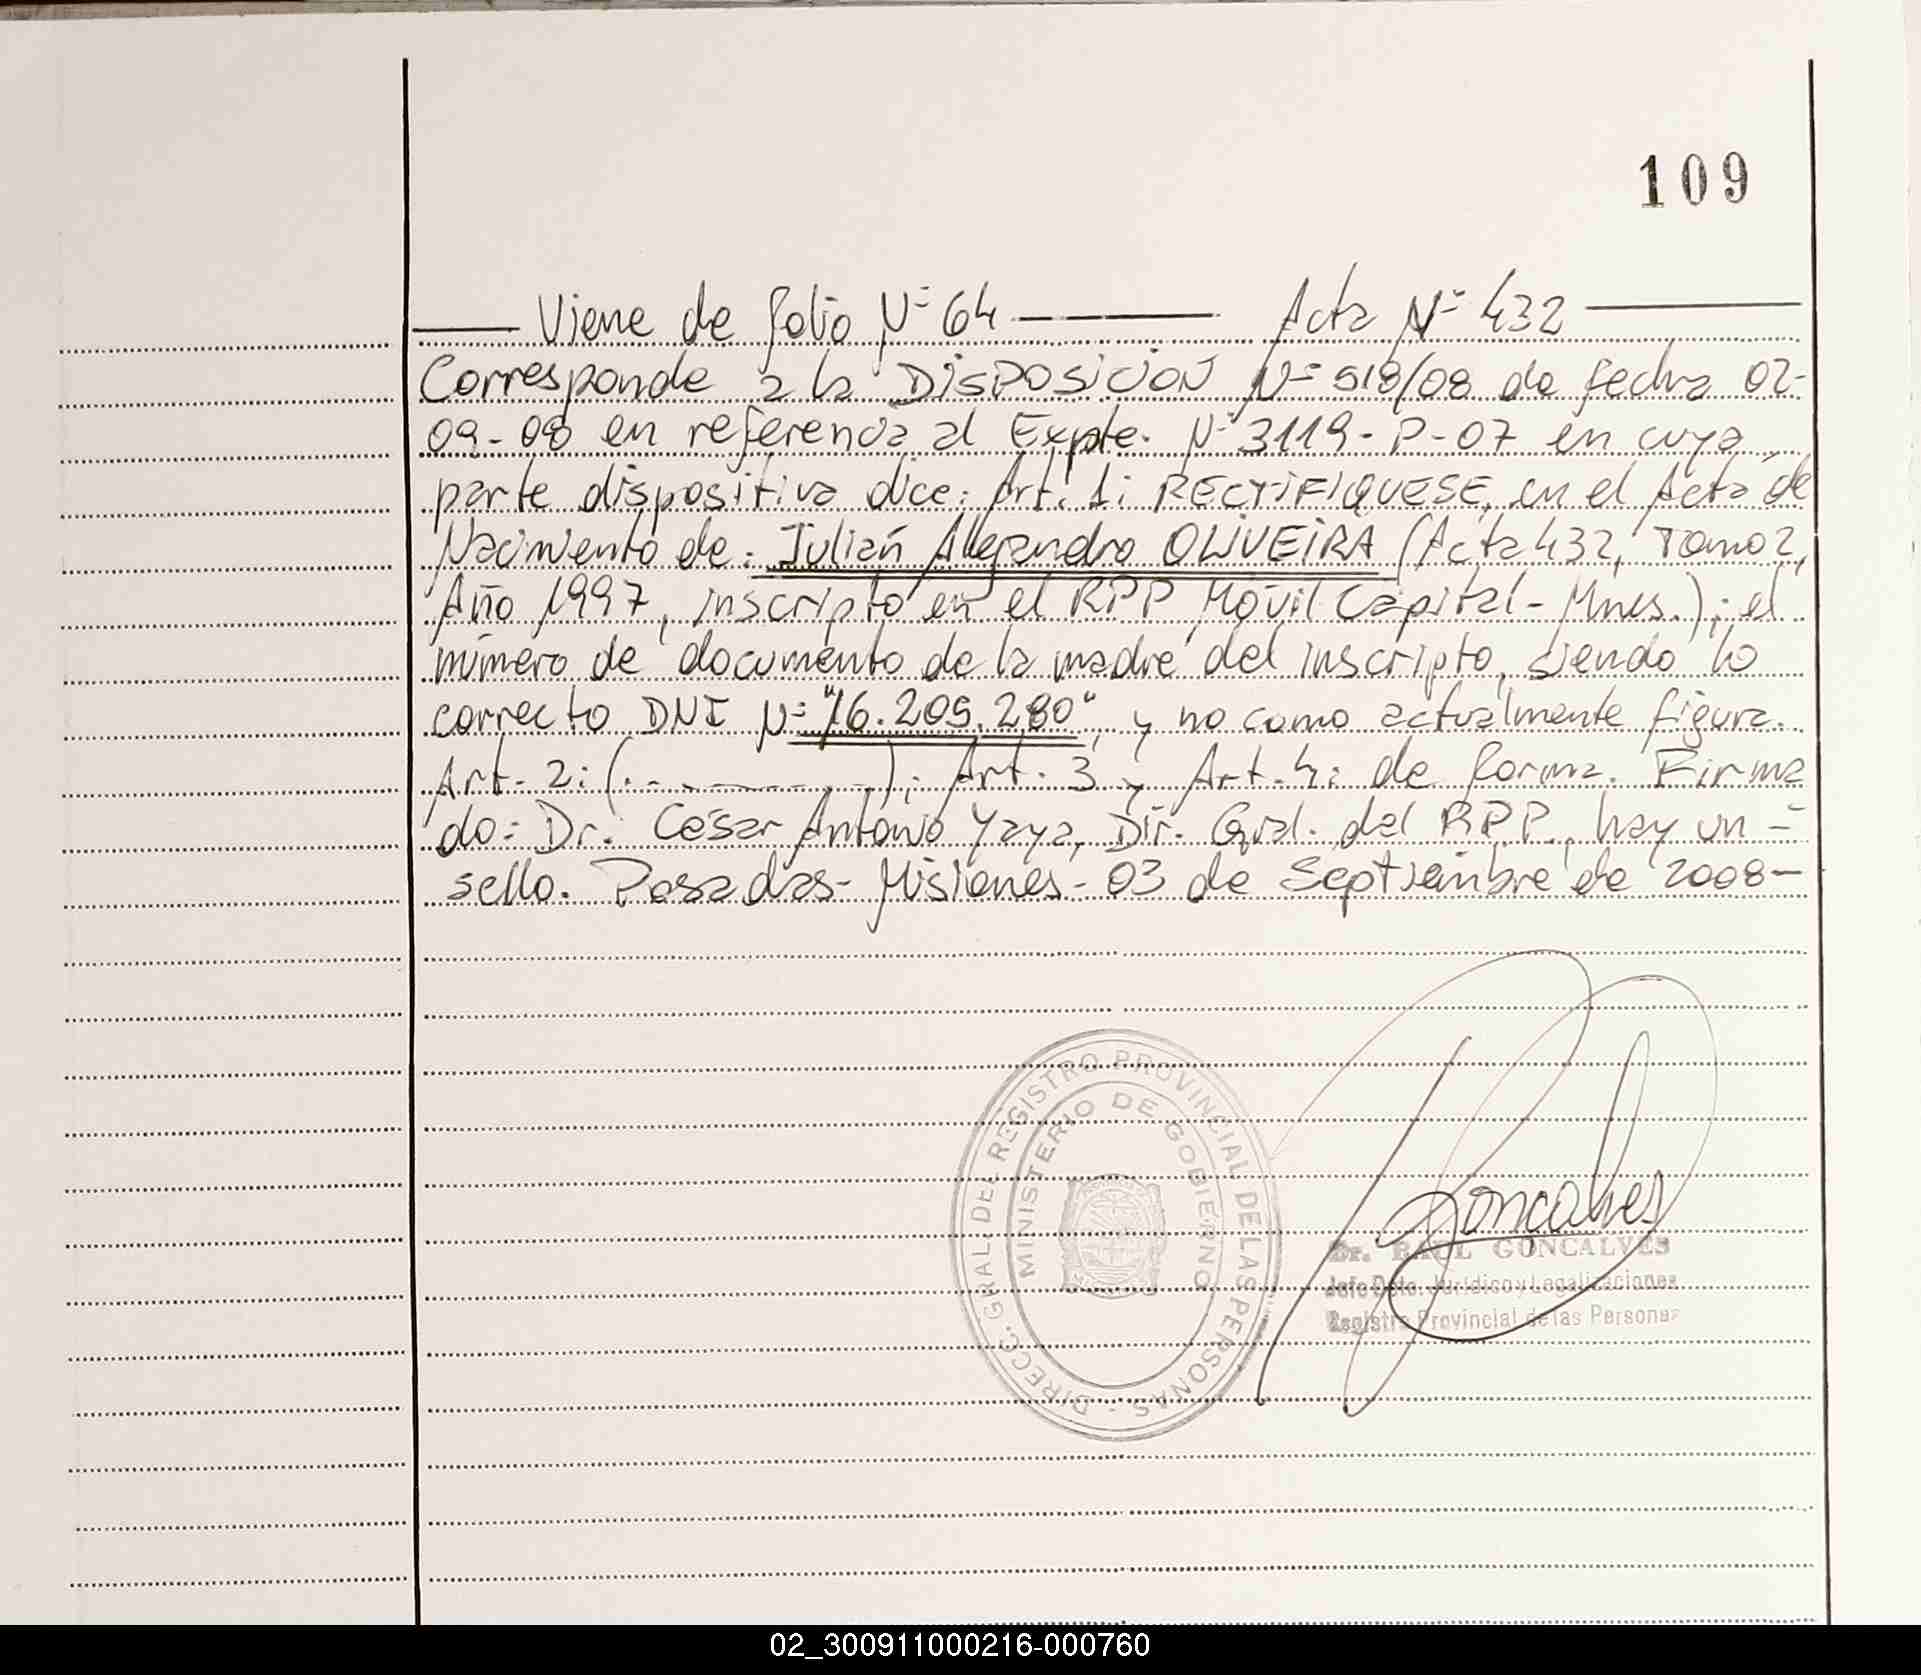 109
Viene de folio Nº 64 Acta Nº 432
Corresponde a la DISPOSICION Nº 518/08 de fecha 02-
09-08 en referencia al Expte. Nº 3119-P-07 en cuya
parte dispositiva dice: Art. 1: RECTIFIQUESE, en el Acta de
Nacimiento de: Julián Alejandro OLIVEIRA (Acta 432, Tomo 2,
Año 1997, inscripto en el RPP Móvil Capital - Mnes.); el
número de documento de la madre del inscripto, siendo lo
correcto DNI Nº "16.209.280", y no como actualmente figura.
Art. 2: (.- ); Art. 3 y Art. 4: de forma. Firma
do: Dr. César Antonio Yaya, Dir. Gral. del RPP., hay un =
sello. Posadas - Misiones - 03 de Septiembre de 2008-
DIRECC. GRAL. DEL REGISTRO PROVINCIAL DE LAS PERSONAS -
MINISTERIO DE GOBIERNO
Goncalves
Dr. RAUL GONCALVES
Jefe Dpto. Jurídico y Legalizaciones
Registro Provincial de las Personas
02_300911000216-000760